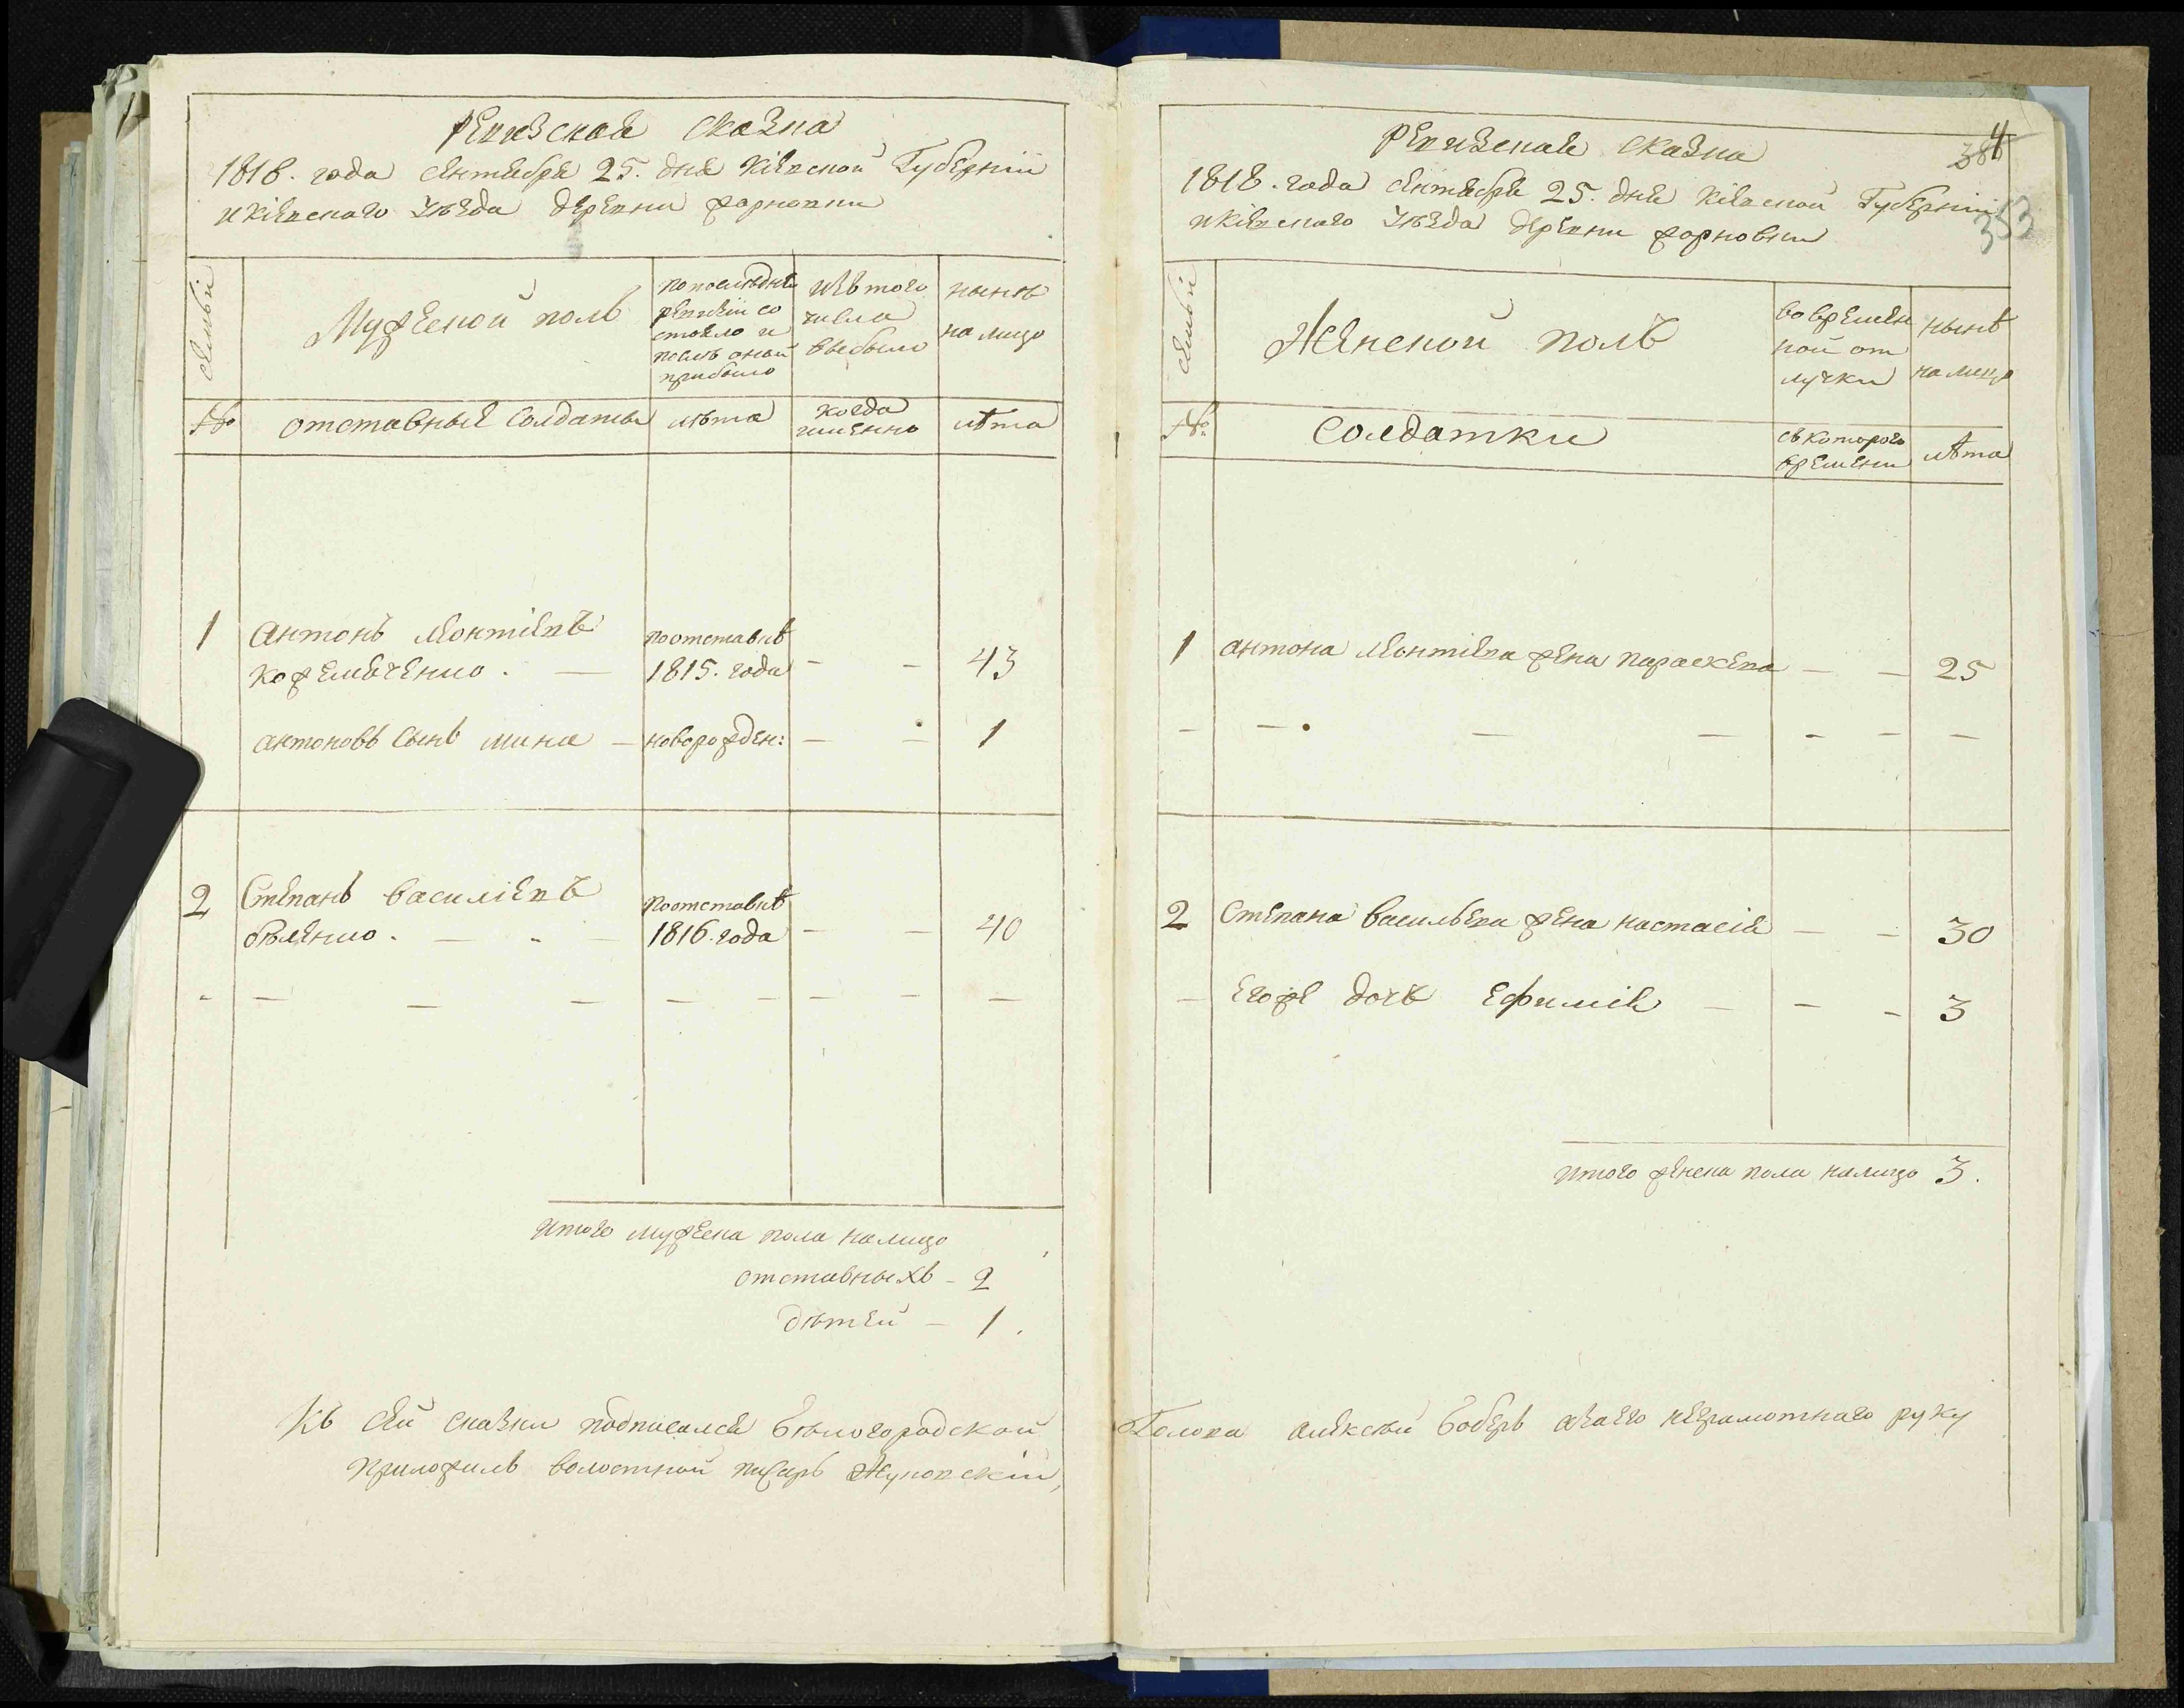 Ревизская сказка
1818. года сентября 25. дня Кіевской Губерніи
и Кіевскаго уѣзда деревни Жорновки
семьи
Мужеской полъ
по последней
ревизіи со
стояло и
послѣ оной
прибыло
изъ того
числа
выбыло
нынѣ
на лицо
№
отставные солдаты
лѣта
когда
именно
лѣта
1
Антонъ Леонтіевъ
поотставкѣ
кожемяченко. —
1815. года
— —
43
антоновъ сынъ мина —
новорожден:
— —
1
2
Степанъ василіевъ
поотставкѣ
бѣленко. — - —
1816. года
— —
40
итого мужеска пола налицо
отставныхъ — 2
дѣтей — 1.
Къ сей сказки подписался Бѣлогородской
приложилъ волостной писарь Жуковскій,
4
386
353
Ревизская сказка
1818. года сентября 25. дня Кіевской Губерніи
и Кіевскаго уѣзда деревни Жорновки
семьи
Женской полъ
во времен
ной от
лучки
нынѣ
на лицо
№
Солдатки
съ котораго
времени
лѣта
1
антона Леонтіева жена параскева
— —
25
2
Степана васильева жена настасія
— —
30
— Егоже дочь Ефимія —
— -
3
итого женска пола налицо 3.
Голова алексѣй Боберъ азаего неграмотнаго руку